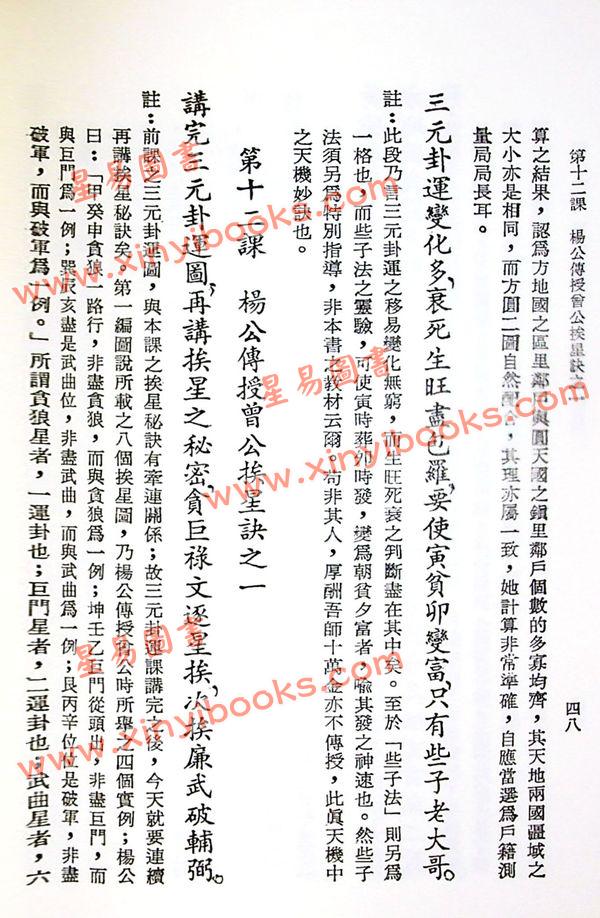 第十二課　楊公傳授曾公挨星訣之一
四八
算之結果，認爲方地國之區里鄰戶與圓天國之鎮里鄰戶個數的多寡均齊，其天地兩國疆域之
大小亦是相同，而方圓二圖自然配合，其理亦屬一致，她計算非常準確，自應當選爲戶籍測
量局局長耳。
三元卦運變化多，衰死生旺盡包羅，要使寅貧卯變富，只有些子老大哥。
註：此段乃言三元卦運之移易變化無窮，而生旺死衰之判斷盡在其中矣。至於「些子法」則另爲
一格也，而些子法之靈驗，可使寅時葬卯時發，變爲朝貧夕富者，喩其發之神速也。然些子
法須另爲特別指導，非本書之教材云爾。苟非其人，厚酬吾師十萬金亦不傳授，此眞天機中
之天機妙訣也。
第十二課　楊公傳授曾公挨星訣之一
講完三元卦運圖，再講挨星之秘密，貪巨祿文逐星挨，次挨廉武破輔弼。
註：前課之三元卦運圖，與本課之挨星秘訣有牽連關係；故三元卦運課講完之後，今天就要連續
再講挨星秘訣矣。第一編圖說所載之八個挨星圖，乃楊公傳授曾公時所舉之四個實例；楊公
曰：「甲癸申貪狼一路行，非盡貪狼，而與貪狼爲一例；坤壬乙巨門從頭出，非盡巨門，而
與巨門爲一例；巽辰亥盡是武曲位，非盡武曲，而與武曲爲一例；艮丙辛位位是破軍，非盡
破軍，而與破軍爲一例。」所謂貪狼星者，一運卦也；巨門星者，二運卦也；武曲星者，六
星易圖書
www.xinyibooks.com
星易圖書
www.xinyibooks.com
星易圖書
www.xinyibooks.com